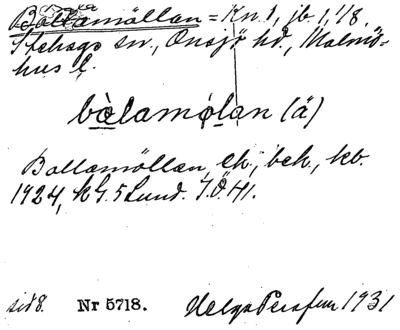 Ballamöllan = Kn. 1, jb. 1, 1/8.
Stehags sn., Onsjö hd., Malmö-
hus l.
bàlamọlan (ä)
Ballamöllan, ek., bek., kb.
1924, k G. 5 Lund. J.Ö.41.
sid 8. Nr 5718. Helge Persson 1931